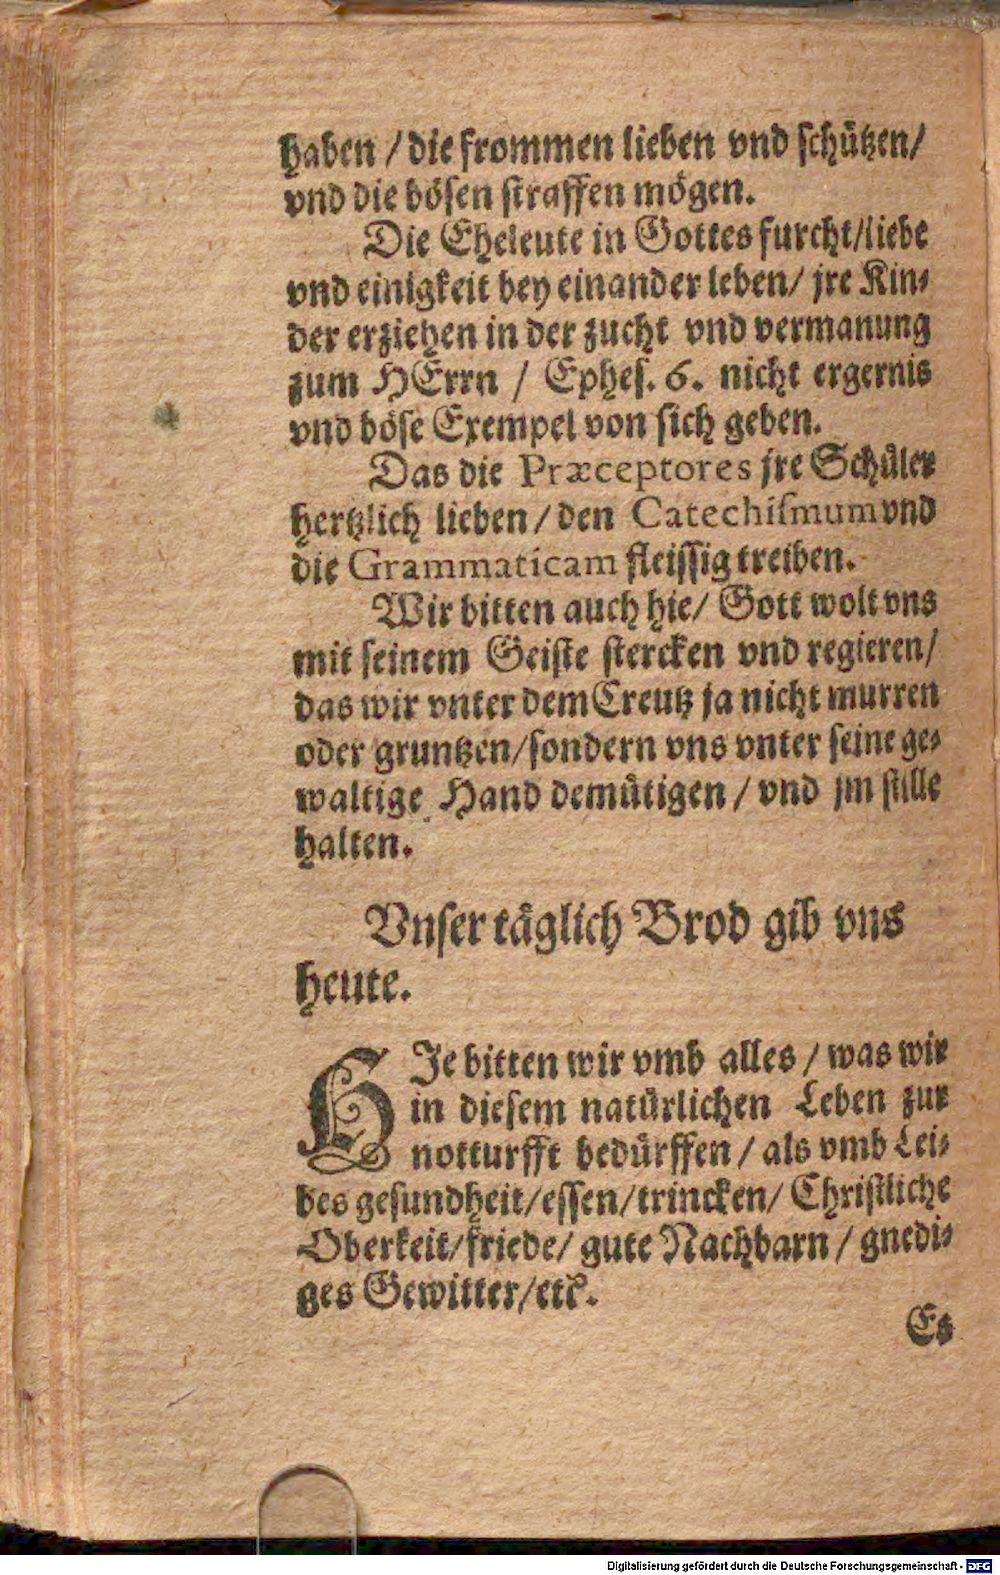 haben / die frommen lieben vnd schützen/
vnd die bösen straffen mögen.
Die Eheleute in Gottes furcht/liebe
vnd einigkeit bey einander leben/ jre Kin-
der erziehen in der zucht vnd vermanung
zum HErrn / Ephes. 6. nicht ergernis
vnd böse Exempel von sich geben.
Das die Præceptores jre Schüler
hertzlich lieben/ den Catechismum vnd
die Grammaticam fleissig treiben.
Wir bitten auch hie/ Gott wolt vns
mit seinem Geiste stercken vnd regieren/
das wir vnter dem Creutz ja nicht murren
oder gruntzen/sondern vns vnter seine ge-
waltige Hand demütigen / vnd jm stille
halten.
Vnser täglich Brod gib vns
heute.
HJe bitten wir vmb alles / was wir
in diesem natürlichen Leben zur
notturfft bedürffen / als vmb Lei-
bes gesundheit/essen/trincken/ Christliche
Oberkeit/friede/ gute Nachbarn / gnedi-
ges Gewitter/etc.
Es
Digitalisierung gefördert durch die Deutsche Forschungsgemeinschaft - DFG